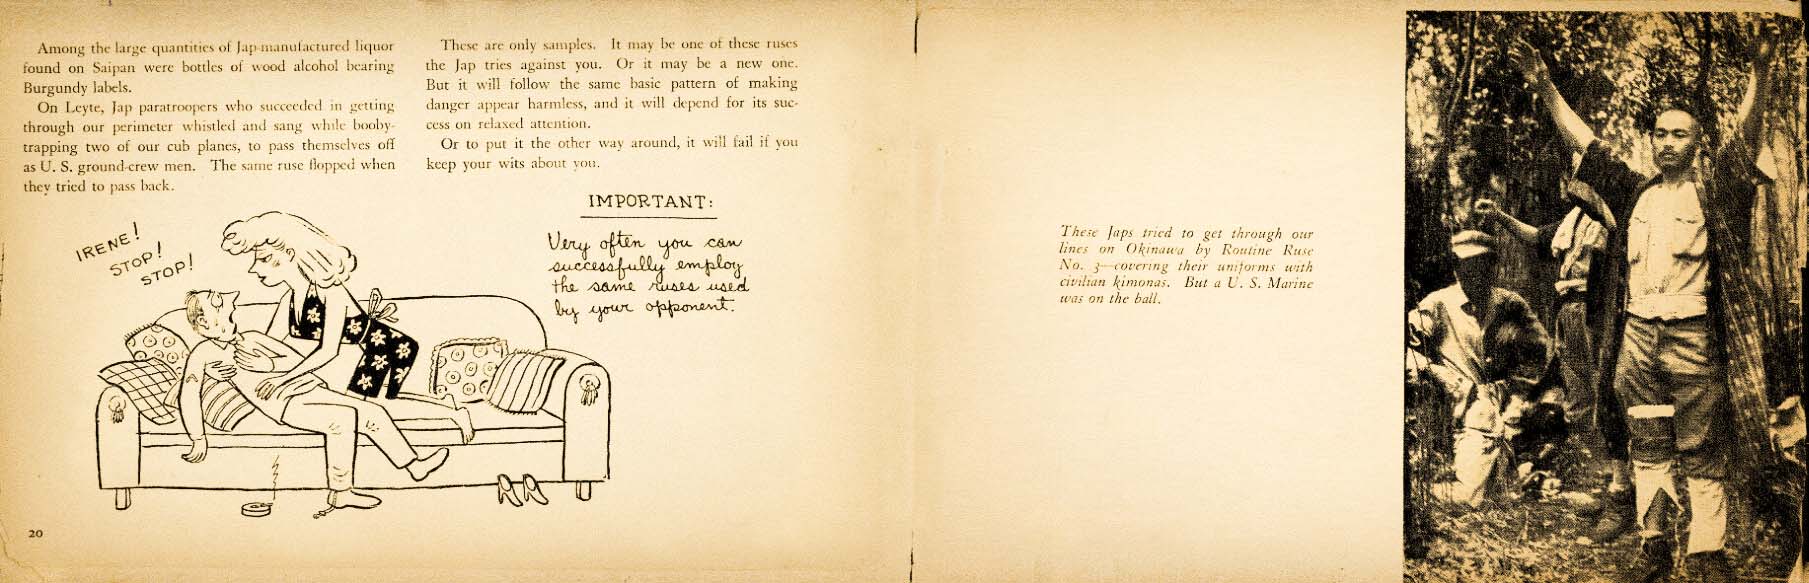 Among the large quantities of Jap-manufactured liquor
found on Saipan were bottles of wood alcohol bearing
Burgundy labels.
On Leyte, Jap paratroopers who succeeded in getting
through our perimeter whistled and sang while booby-
trapping two of our cub planes, to pass themselves off
as U. S. ground-crew men. The same ruse flopped when
they tried to pass back.
These are only samples. It may be one of these ruses
the Jap tries against you. Or it may be a new one.
But it will follow the same basic pattern of making
danger appear harmless, and it will depend for its suc-
cess on relaxed attention.
Or to put it the other way around, it will fail if you
keep your wits about you.
IRENE!
STOP!
STOP!
IMPORTANT:
Very often you can
successfully employ
the same ruses used
by your opponent.
20
These Japs tried to get through our
lines on Okinawa by Routine Ruse
No. 3—covering their uniforms with
civilian kimonas. But a U. S. Marine
was on the ball.